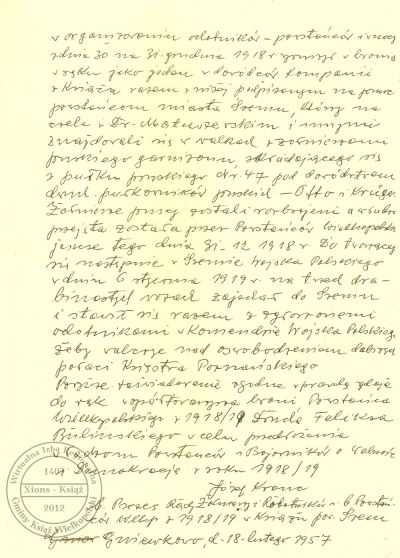 w organizowaniu ochotników - powstańców i w nocy
z dnia 30 na 31. grudnia 1918 r. z bronią
w ręku jako jeden z dowódców Kompanii
z Książa razem z niżej podpisanym na pomoc
powstańcom miasta Śremu, którzy na
czele z Dr. Matuszewskim i innymi
znajdowali się w walkach z żołnierzami
pruskiego garnizonu, składającego się
z pułku pruskiego nr. 47 pod dowództwem
pułkowników pruskich - Otto i Krüger.
Żołnierze pruscy zostali rozbrojeni a
przejęta została przez Powstańców Wielkopolskich
jeszcze tego dnia 31-12 1918 r. Do tworzącego
się następnie w Śremie Wojska Polskiego
w dniu 6 stycznia 1919 r. na
wozach zajechał do Śremu
i stawił się razem z
ochotnikami w Komendzie Wojska Polskiego,
żeby walczyć nad oswobodzeniem dalszych
połaci Księstwa Poznańskiego
Powyższe zaświadczenie zgodne z prawdą
do rąk współtowarzysza broni Powstańca
Wielkopolskiego z 1918/19 Feliksa
Bulinskiego w celu przedłożenia
Powstańców i Bojowników o Wolność
i Demokrację z roku 1918/19
Józef Kranc
b. Prezes Rady Żołnierzy i Robotników i b. Powstań-
ców Wlkp z 1918/19 w Książu pow. Śrem
Gniewkowo, d. 18-lutego 1957
Wirtualna Izba Pamięci
1407
Xions - Książ
2012
Gminy Książ Wielkopolski